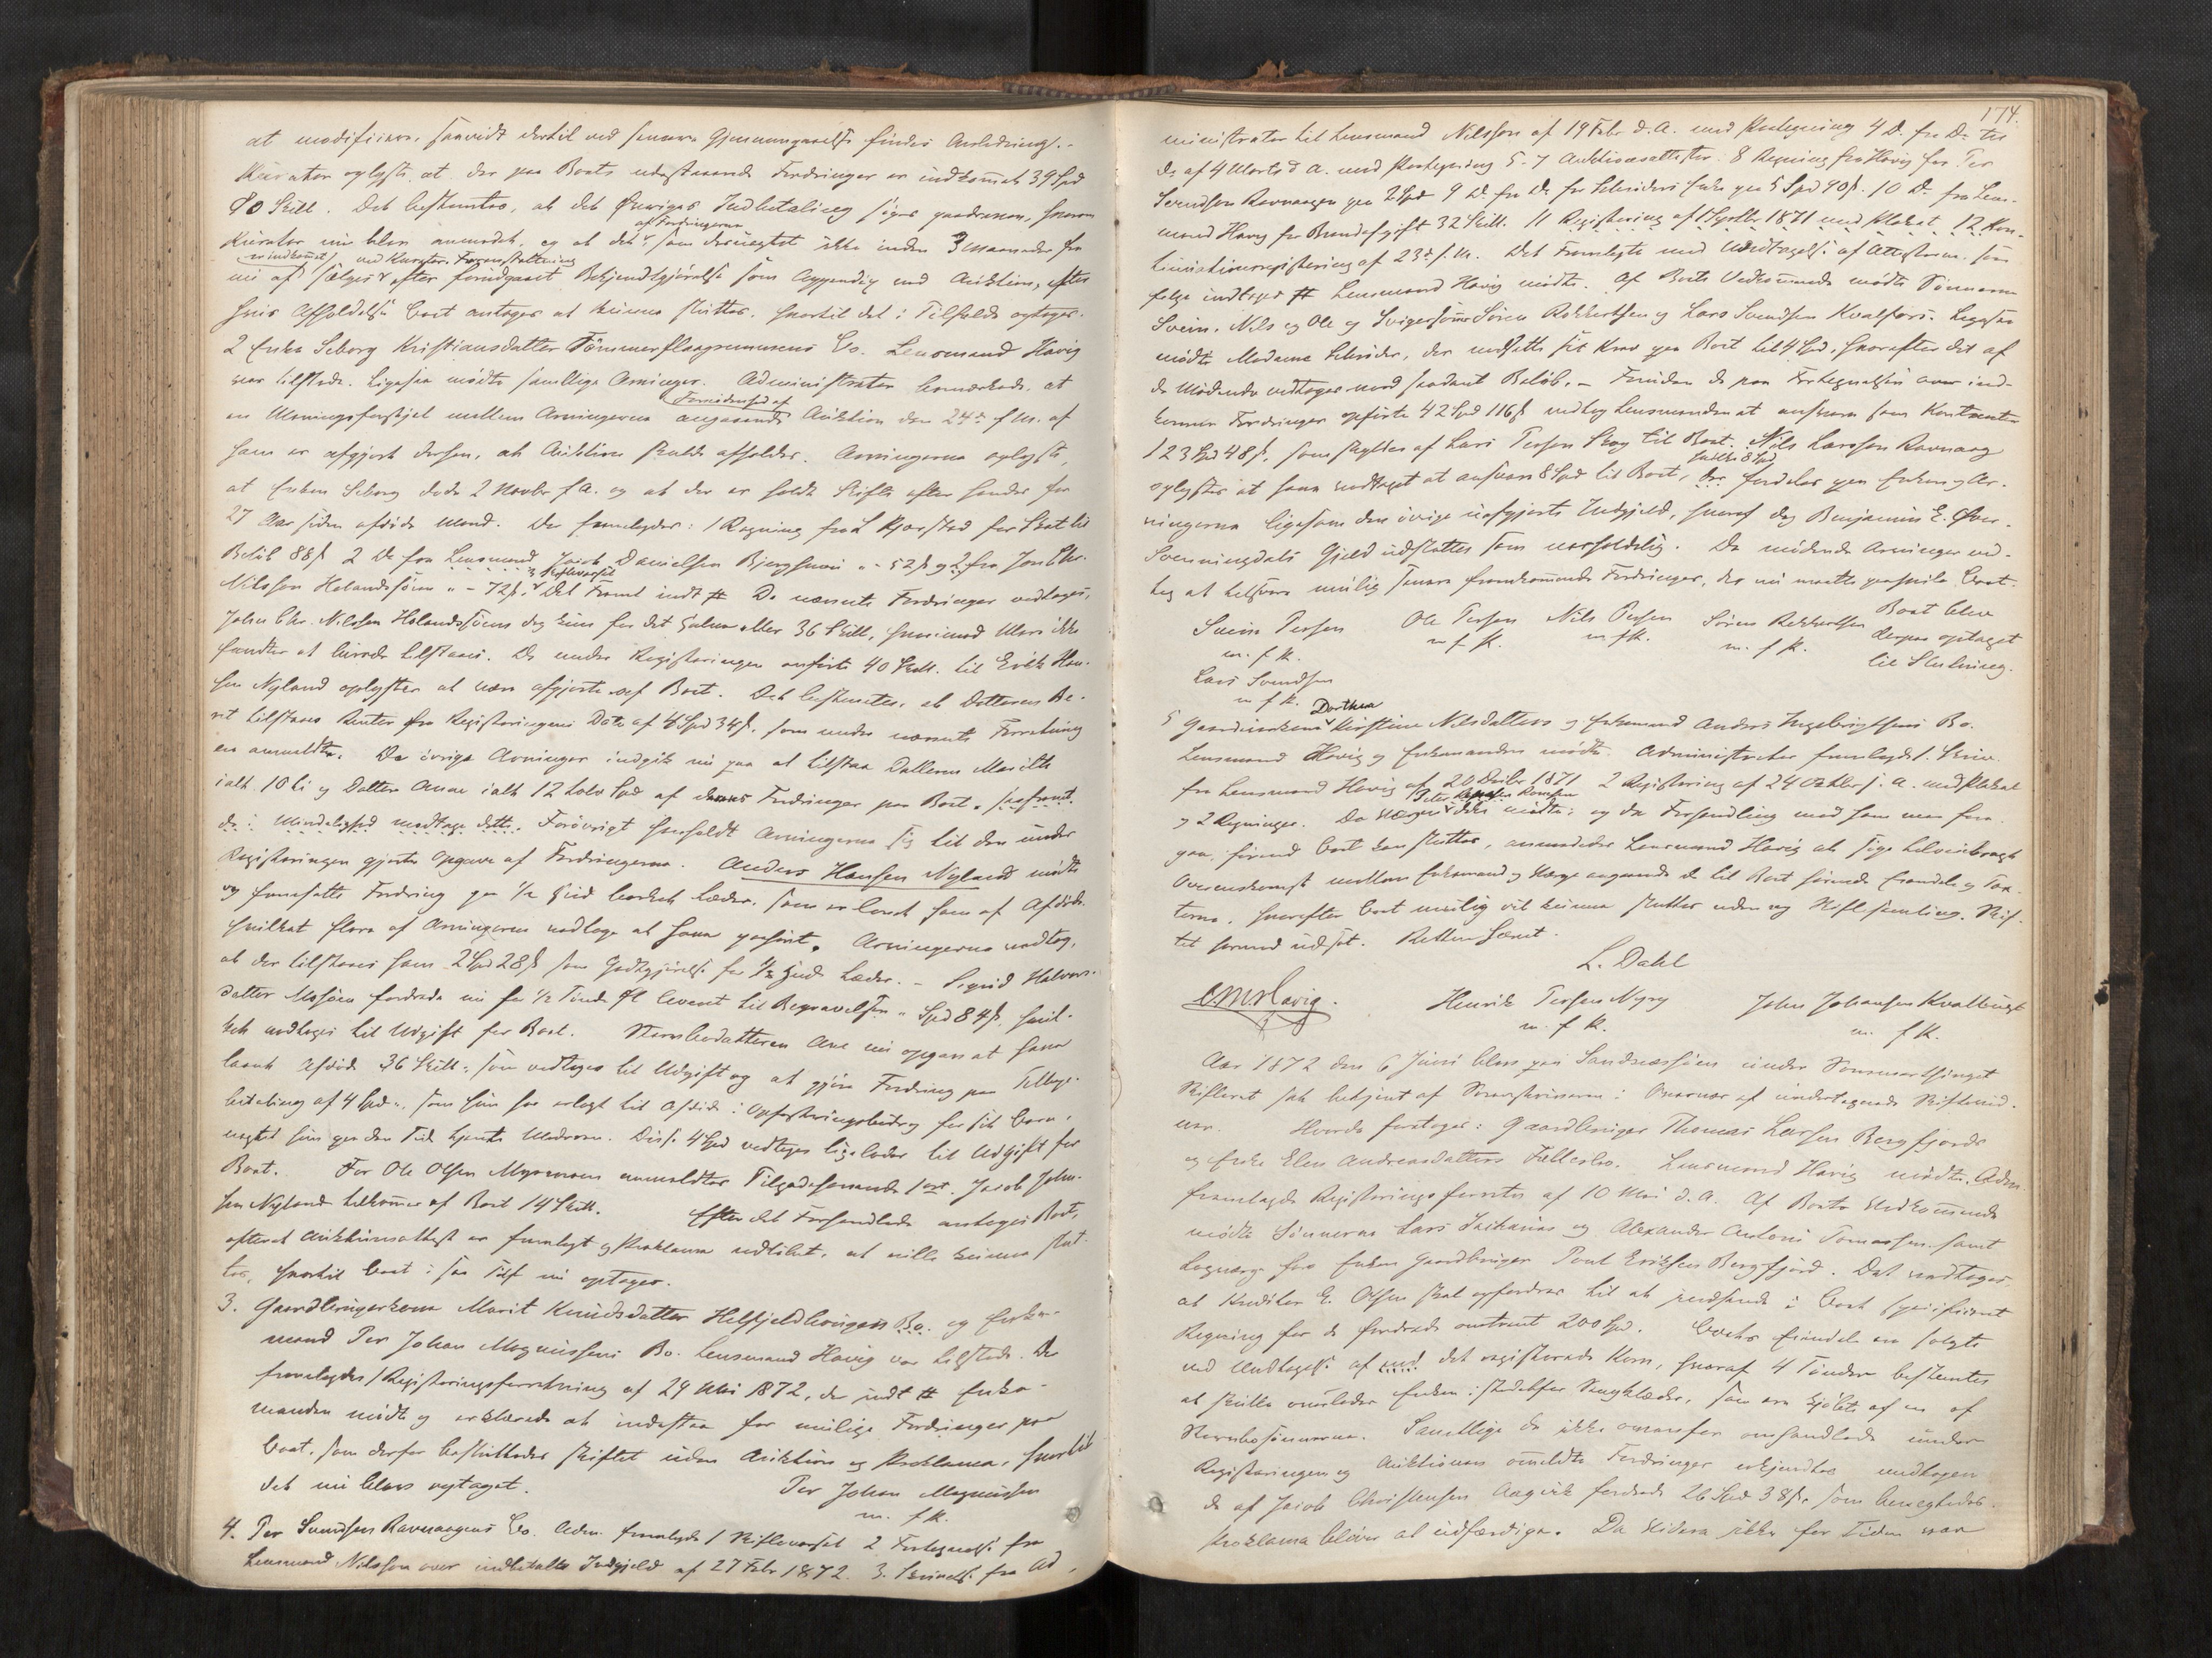 at modificere, saavidt dertil ved senere Gjennemgaaelse findes Anledning.-
Kurator oplyste, at der paa Boets udestaaende Fordringer er indkommet 39 Spd
80 Skill. Det bestemtes, at det Øvriges Indbetaling søges paadreven, hvorom
af Fordringerne
Kurator nu blev anmodet, og at det som desuagtet ikke inden 3 Maaneder fra
er indkommet, ved Kurator Foranstaltning
nu af sælges efter forudgaaet Bekjendtgjørelse som Appendix ved Auktion, efter
hvis Afholdelse Boet antages at kunne sluttes, hvortil det i Tilfælde optages.
2 Enke Seborg Kristiansdatter Tømmer Bo. Lensmand Havig
var tilstede. Ligesaa mødte samtlige Arvinger. Administrator bemærkede, at
Fremidenhed af
en Meningsforskjel mellem Arvingerne angaaende Auktion den 24de f. M. af
ham er afgjort derhen, at Auktion skulde afholdes. Arvingerne oplyste,
at Enken Seborg døde 2 Novbr f. A. og at der er holdt Skifte efter hendes for
27 Aar siden afdøde Mand. Der fremlagdes: 1 Regning fra L Bjørstad for Skat til
Beløb 88 s 2 Do fra Lensmand Jacob Danielsen " - 52 s og 2 fra John Chr.
3 Skifteforfal
Nilssen Holandsjøen " - 72 s. Det Freml indt # De nævnte Fordringer vedtages,
John Chr. Nilssen Holandsjøens dog kun for det halve eller 36 Skill, hvorimod Mere ikke
fandtes at burde tilstaaes. De under Registreringen anførte 40 Skill. til Erik Han-
sen Nyland oplystes at være afgjorte af Boet. Det bestemtes, at Datteren Be-
rit tilstaaes Renter fra Registreringens Dato af 4 Spd 34 s. som under nævnte Forretning
en anmeldte. De øvrige Arvinger indgik nu paa at tilstaa Datteren Marith
ialt 10 ti og Datter Anne ialt 12 tolv Spd af deres Fordringer paa Boet,
de i Mindelighed modtage dette. Forøvrigt henholdt Arvingerne sig til den under
Registreringen gjorte Opgave af Fordringerne. Anders Hansen Nyland mødte
og fremsatte Fordring paa 1/2 Hud barket Læder, som er lovet ham af Afdøde
hvilket flere af Arvingerne vedtage at have paahørt. Arvingerne vedtog,
at der tilstaaes ham 2 Spd 28 s som Godtgjørelse for 1/2 Hud Læder. - Sigrid Halvors-
datter Mosøen fordrede nu for 1/2 Tønde Øl lavet til Begravelsen " Spd 84 s, hvil-
ket vedtoges til Udgift for Boet. Stervbodatteren Ane nu opgav at have
laant Afdøde 36 Skill., som vedtoges til Udgift og at gjøre Fordring paa Tilbage-
betaling af 4 Spd., som hun har erlagt til Afdøde i Opfostringsbidrag for sit Barn,
uagtet hun paa den Tid tjente Moderen. Disse 4 Spd vedtoges ligeledes til Udgift for
Boet. For Ole Olsen anmeldtes Tilgodehavende 1 ort. Jacob John-
sen Nyland tilkommer af Boet 14 Skill. Efter det Forhandlede antages Boet,
efterat Auktionsattest er fremlagt og Proklama udløbet, at ville kunne slut-
tes, hvortil Boet i saa Fald nu optages.
3. Gaardbrugerkone Marit Knudsdatter Helfjeldleringens Bo. og Enke-
mand Per Johan Magnussens Bo. Lensmand Havig var tilstede. Der
fremlagdes 1 Registreringsforretning af 29 Mai 1872, der indt # Enke-
manden mødte og erklærede at indestaa for mulige Fordringer paa
Boet, som derfor besluttedes skiftet uden Auktion og Proklama, hvortil
det nu blev optaget. Per Johan Magnussen
m. f. P.
4. Per Svendsen Ravnaagens Bo. Adm. fremlagde 1 Skifteforfal 2 Fortegnelse fra
Lensmand Nilssen over indbetalte Indgjeld af 27 Febr 1872. 3. Skrivelse fra Ad-
174.
ministrator til Lensmand Nilsson af 19 Febr d. A. med Paategning 4 Do. fra Do til
Do af 4 Marts d. A. med Paategning 5-7 Auktionsattester. 8 Regning fra Havig for Per
Svendsen Ravnaagen paa 2 Spd 9 Do fra Do for Schrøders Enke paa 5 Spd 90 s. 10 Do. fra Lens-
mand Havig for Brandafgift 32 Skill. 11 Registrering af 1871 med Plakat 12. Kon-
tinuationsregistrering af 23de f. M. Det Fremlagte med Undtagelse af Attesterne som
følge indtages # Lensmand Havig mødte. Af Boets Vedkommende mødte Sønnerne
Svein, Nils og Ole og Svigersønnerne Søren Rekkertsen og Lars Svendsen Kvalfors. Ligesaa
mødte Madame Schrøder, der nedsatte sit Krav paa Boet til 4 Spd, hvorefter det af
de Mødende vedtoges med saadant Beløb. - Foruden de paa Fortegnelsen over ind-
komne Fordringer opførte 42 Spd 116 s vedtog Lensmanden at ansvare som Kontante
123 Spd 48 s, som skyldes af Lars Persen Skog til Boet. Nils Larssen Ravnaag
hvilke 8 Spd
oplystes at have vedtaget at ansvare 8 Spd til Boet, der fordeles paa Enken og Ar-
vingerne ligesom den øvrige uafgjorte Indgjeld, hvoraf dog Benjamin E. Øver-
Svenningdals Gjeld udskattes som uerholdelig. De mødende Arvinger ved-
tog at tilsvare mulig senere fremkommende Fordringer, der nu maatte paahvile Boet.
Svein Persen Ole Persen Nils Persen Søren Rekkertsen Boet blev
m. f. P. m f P. m f P. m. f P. derpaa optaget
Lars Svendsen til Slutning.
m f P.
Dorthea
5 Gaardmandskone Kirstine Nilsdatters og Enkemand Anders Ingebrigtsens Bo.
Lensmand Havig og Enkemanden mødte. Administrator fremlagde 1. Skriv.
fra Lensmand Havig af 20 Decbr 1871 2 Registrering af 24 Oktbr f. A. med Plakat
og 2 Regninger. Da Værgen ikke mødte, og da Forhandling med ham maa fore-
gaa, førend Boet kan sluttes, anmodedes Lensmand Havig at søge tilveiebragt
Overenskomst mellem Enkemand og Værge angaaende de til Boet hørende Eiendele og Tax-
terne, hvorefter Boet mulig vil kunne sluttes uden ny Skiftesamling. Skif-
tet forend udsat. Retten hævet.
L. Dahl
C.M. Havig. Henrik Persen Nyrg John Johansen Kvalbugt
m. f. P. m. f P.
Aar 1872 den 6 Juni blev paa Sandnæssjøen under Sommerthinget
Skifteret sat betjent af Sorenskriveren i Overvær af undertegnede Skiftevid-
ner. Hvorda foretoges: Gaardbruger Thomas Larsen Bergfjords
og Enke Elen Andreasdatters Fællesbo. Lensmand Havig mødte. Adm.
fremlagde Registreringsforretn af 10 Mai d. A. Af Boets Vedkommende
mødte Sønnerne Lars Zacharias og Alexander Antoni Tomassen samt
Lagværge for Enken Gaardbruger Poul Eriksen Bergfjord. Det vedtoges
at Kreditor E. Olsen skal opfordres til at indsende i Boet specificeret
Regning for de fordrede omtrent 200 Spd. Boets Eiendele ere solgte
med Undtagelse af det registrerede Korn, hvoraf 4 Tønder bestemtes
at skulle overlades Enken istedetfor Sengklæder, som ere kjøbte af en af
Stervbosønnerne. Samtlige de ikke ovenfor omhandlede under
Registreringen og Auktionen anmeldte Fordringer erkjendtes undtagen
de af Jacob Christensen Aagvik fordrede 26 Spd 38 s, som benegtedes.
Proklama bliver at udfærdige. Da Videre ikke for Tiden var